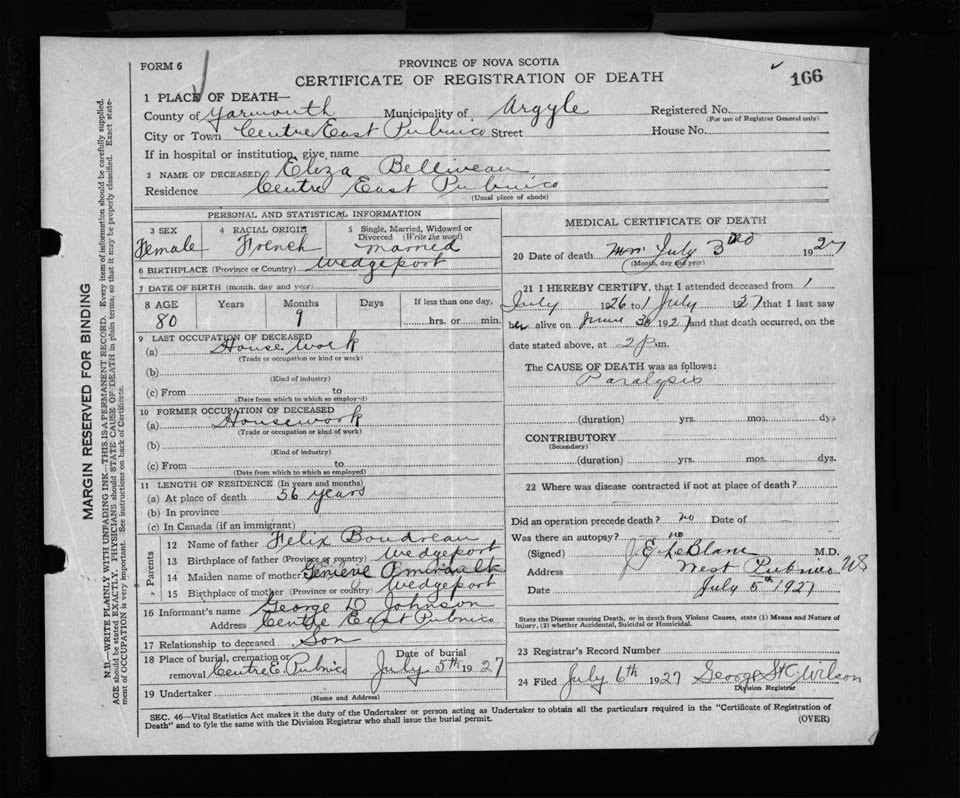 FORM 6
PROVINCE OF NOVA SCOTIA
CERTIFICATE OF REGISTRATION OF DEATH
166
1 PLACE OF DEATH—
County of Yarmouth Municipality of Argyle Registered No.
(For use of Registrar General only)
City or Town Centre East Pubnico Street House No.
If in hospital or institution, give name
2 NAME OF DECEASED Eliza Belliveau
Residence Centre East Pubnico
(Usual place of abode)
MARGIN RESERVED FOR BINDING
N.B.—WRITE PLAINLY WITH UNFADING INK—THIS IS A PERMANENT RECORD. Every item of information should be carefully supplied.
AGE should be stated EXACTLY. PHYSICIANS should STATE CAUSE OF DEATH in plain terms, so that it may be properly classified. Exact statement of OCCUPATION is very important. See instructions on back of Certificate.
PERSONAL AND STATISTICAL INFORMATION
3 SEX Female
4 RACIAL ORIGIN French
5 Single, Married, Widowed or Divorced (Write the word) Married
6 BIRTHPLACE (Province or Country) Wedgeport
7 DATE OF BIRTH (month, day and year)
8 AGE Years Months Days If less than one day,
80 9 hrs. or min.
9 LAST OCCUPATION OF DECEASED
(a) House Work
(Trade or occupation or kind or work)
(b)
(Kind of industry)
(c) From to
(Date from which to which so employed)
10 FORMER OCCUPATION OF DECEASED
(a) Housework
(Trade or occupation or kind of work)
(b)
(Kind of industry)
(c) From to
(Date from which to which so employed)
11 LENGTH OF RESIDENCE (In years and months)
(a) At place of death 56 years
(b) In province
(c) In Canada (if an immigrant)
Parents
12 Name of father Felix Boudreau
13 Birthplace of father (Province or country) Wedgeport
14 Maiden name of mother
15 Birthplace of mother (Province or country) Wedgeport
16 Informant's name George D Johnson
Address Centre East Pubnico
17 Relationship to deceased Son
18 Place of burial, cremation or removal Centre E. Pubnico
Date of burial July 5th 1927
19 Undertaker
(Name and Address)
MEDICAL CERTIFICATE OF DEATH
20 Date of death July 3rd 1927
(Month, day and year)
21 I HEREBY CERTIFY, that I attended deceased from 1
July 1926 to 1 July 1927 that I last saw
her alive on June 30 1927 and that death occurred, on the
date stated above, at 2 p.m.
The CAUSE OF DEATH was as follows:
Paralysis
(duration) yrs. mos. dys
CONTRIBUTORY
(Secondary)
(duration) yrs. mos. dys.
22 Where was disease contracted if not at place of death?
Did an operation precede death? no Date of
Was there an autopsy? no
(Signed) J E LeBlanc M.D.
Address West Pubnico NS
Date July 5th 1927
State the Disease causing Death, or in death from Violent Causes, state (1) Means and Nature of
Injury, (2) whether Accidental, Suicidal or Homicidal.
23 Registrar's Record Number
24 Filed July 6th 1927 George St C Wilson
Division Registrar
SEC. 46—Vital Statistics Act makes it the duty of the Undertaker or person acting as Undertaker to obtain all the particulars required in the "Certificate of Registration of
Death" and to fyle the same with the Division Registrar who shall issue the burial permit.
(OVER)